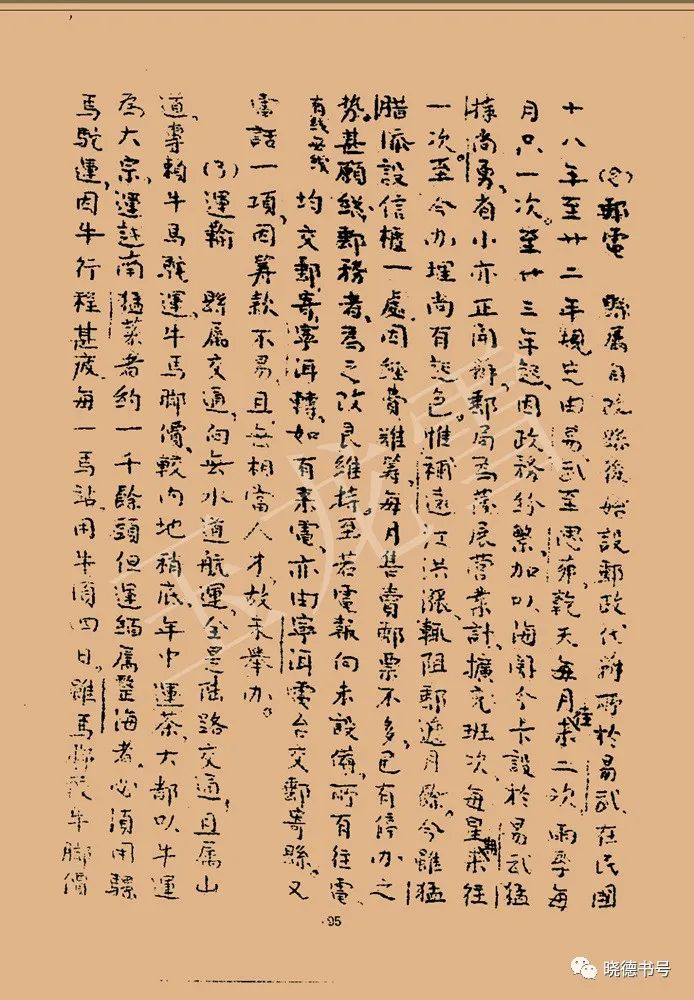 (2)郵電　縣屬自設縣後始設郵政代辦所於易武、在民國
十八年至廿二年規定由易武至思茅乾天每月來往二次雨季每
月只一次。至廿三年起、因政務紛繁加以海關今卡設於易武猛
捧尚勇、者小亦正開辦、郵局為發展營業計、擴充班次、每星期來往
一次至今办理尚有起色。惟補遠江洪漲、輒阻郵遞月餘、今雖猛
腊添設信櫃一處因經費難籌每月售賣郵票不多、已有停办之
勢。甚願總郵務者為之改良維持。至若電報向未設備、所有往電、
有线无线
均交郵寄寧洱轉、如有來電、亦由寧洱電台交郵寄縣、又
電話一項、因籌款不易、且無相當人才、故未舉办。
(3)運輸　縣屬交通、向無水道航運、全是陆路交通、且属山
道、專賴牛馬駝運、牛馬脚價、較内地稍底、年中運茶、大都以牛運
為大宗、運越南猛萊者約一千餘頭但運緬属整海者、必須用騾
馬駝運、因牛行程甚疲、每一馬站、用牛須四日、雖馬脚 牛脚價
·95
玉龙雪
晓德书号